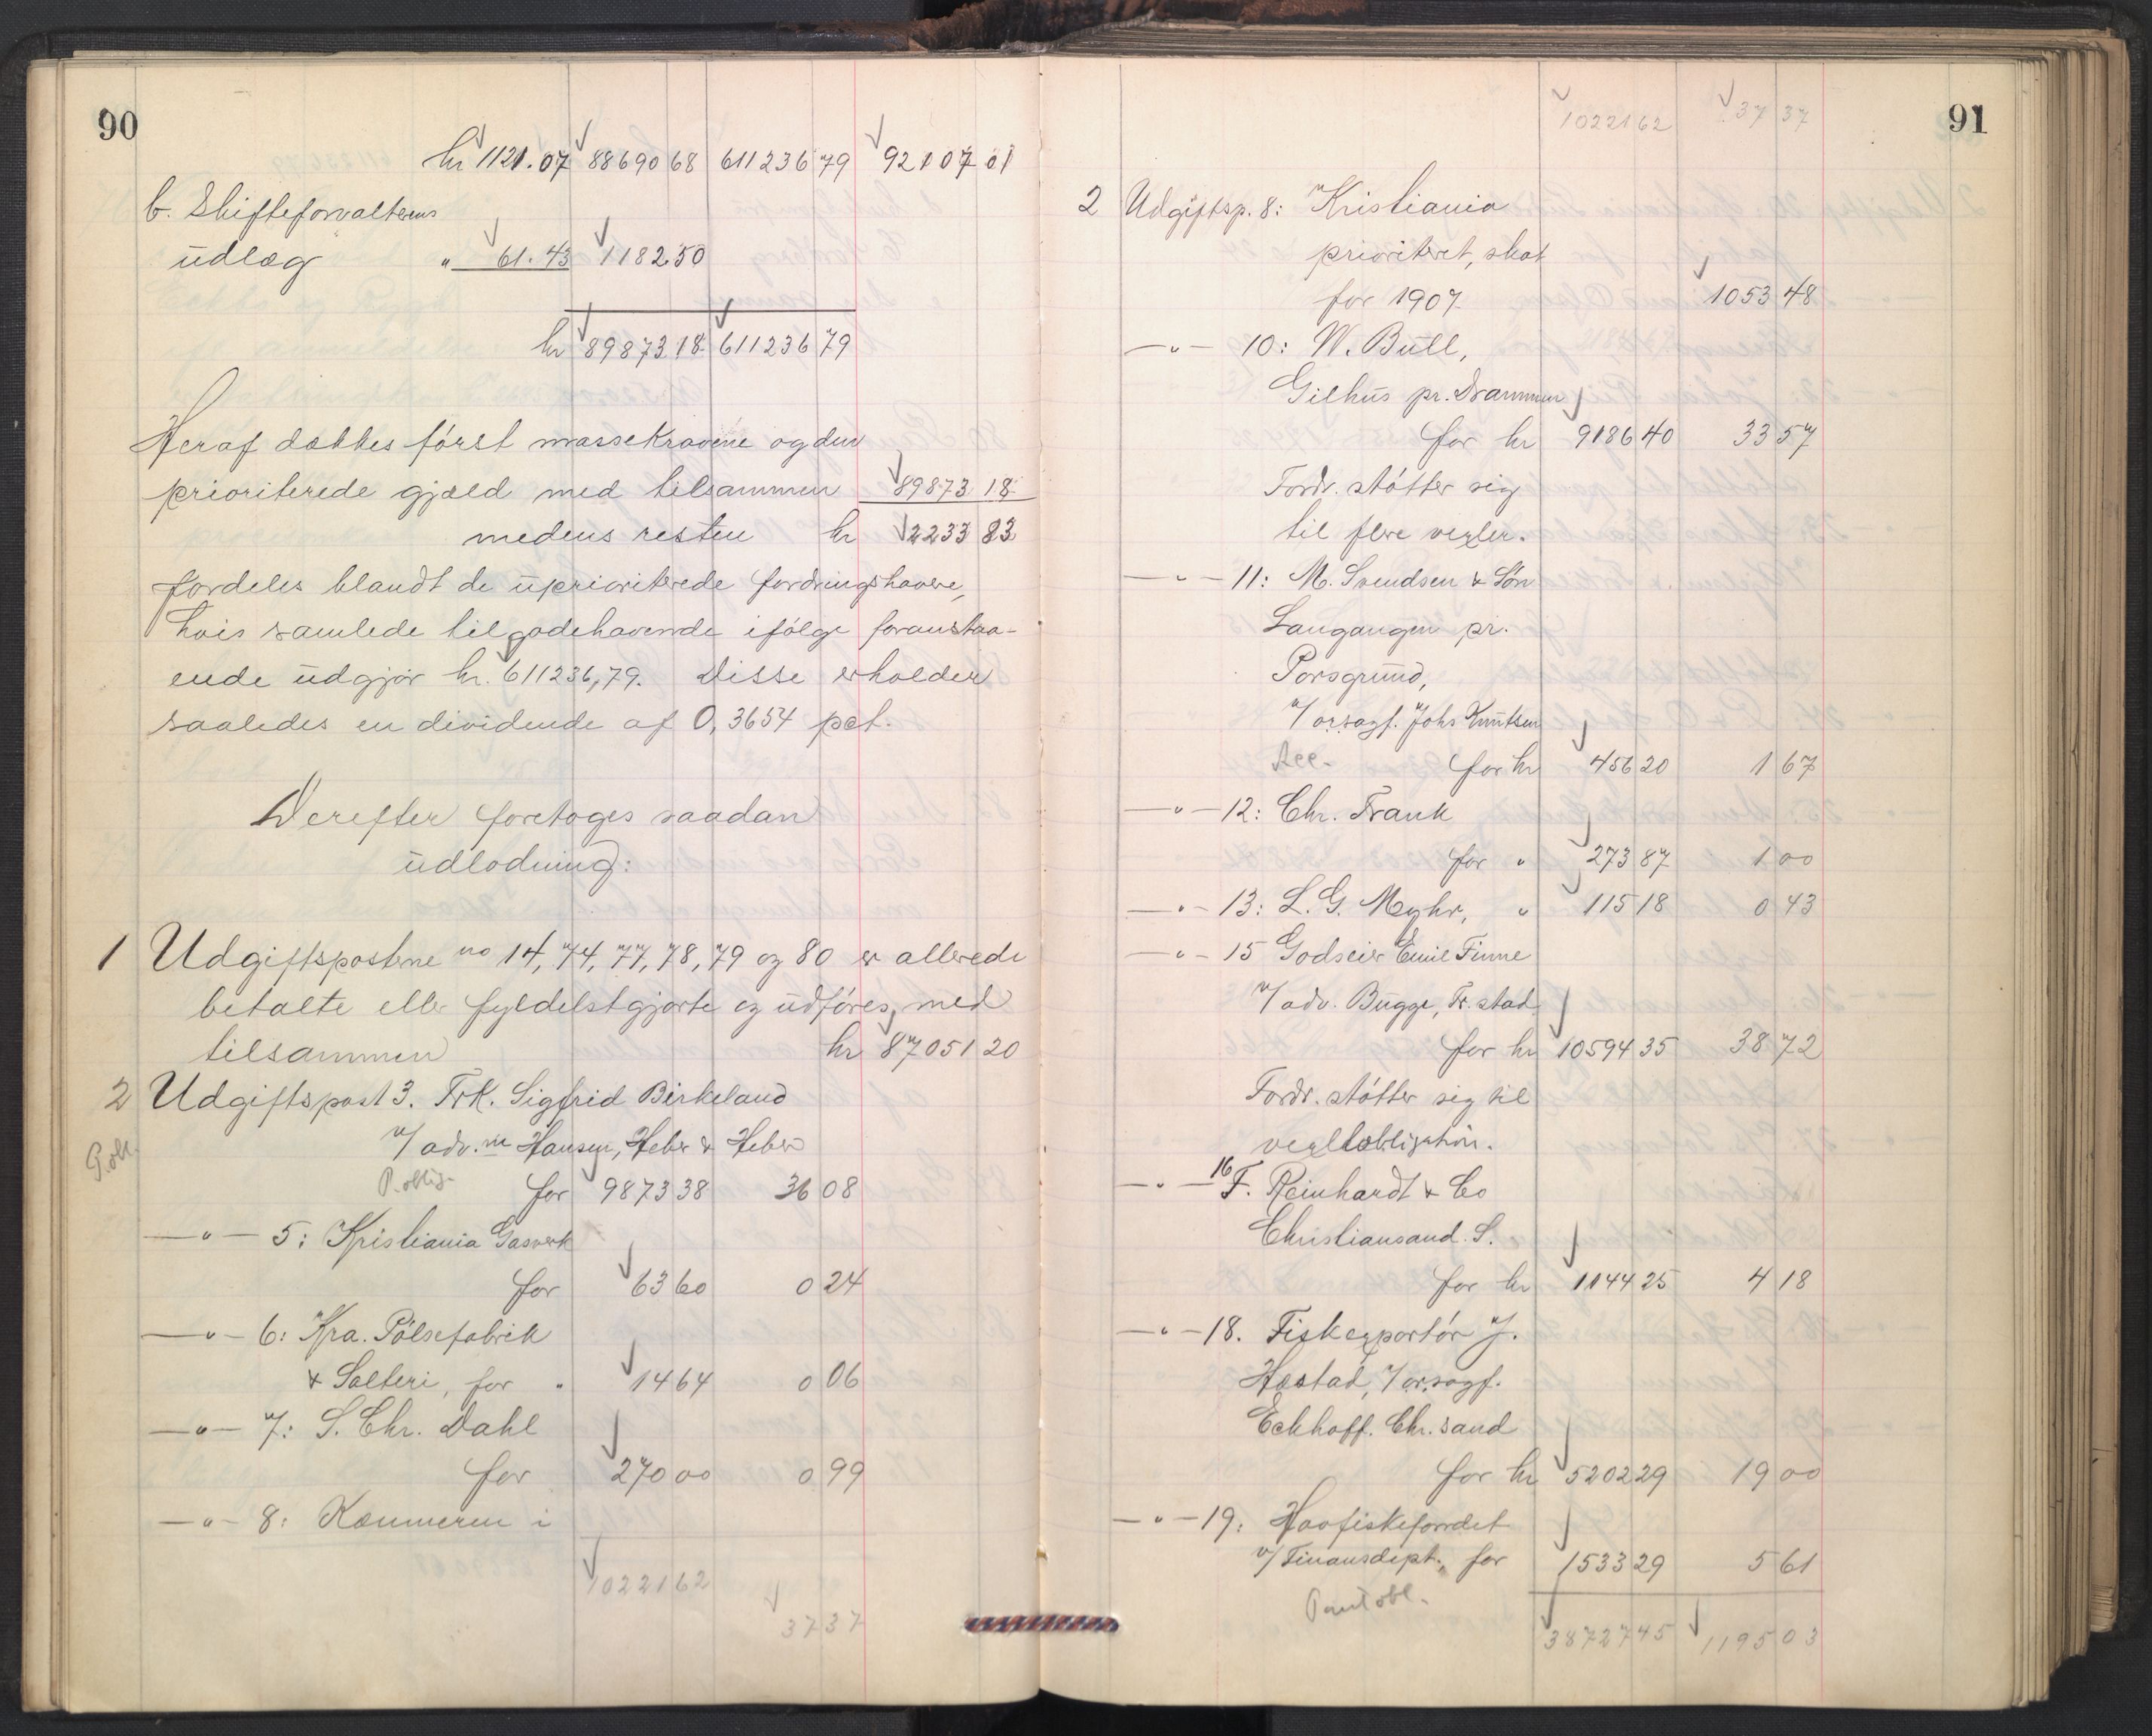 90
kr 1121.07 88690 68 611236 79 92107 01
b. Skifteforvalterens
udlæg " 61.43 1182.50
kr 89873.18 611236 79
Heraf dækkes først massekravene og den
prioriterede gjæld med tilsammen 89873 18
medens resten kr 2233 83
fordeles blandt de uprioriterede fordringshavere,
hvis samlede tilgodehavende ifølge foranstaa-
ende udgjør kr. 611236,79. Disse erholder
saaledes en dividende af 0,3654 pct.
Derefter foretoges saadan
udlodning:
1 Udgiftsposterne no 14, 74, 77, 78, 79 og 80 er allerede
betalte eller fyldestgjorte og udføres, med
tilsammen kr 87051 20
2 Udgiftspost 3. Frk. Sigfrid Birkeland
v/ adv.ne Hansen, Heber & Heber
P.obl.
P.oblig. for 9873 38 36 08
—"— 5: Kristiania Gasverk
for 63 60 0 24
—"— 6: Kra. Pølsefabrik
& Salteri, for " 14 64 0 06
—"— 7: S. Chr. Dahl
for 270 00 0 99
—"— 8: Kæmneren i
10221 62
37 37
91
10221 62 37 37
2 Udgiftsp. 8: Kristiania
prioritert, skat
for 1907 1053 48
—"— 10: W. Bull,
Gilhus pr. Drammen
for kr 9186 40 33 57
Fordr. støtter sig
til flere vexler.
—"— 11: M. Svendsen & Søn
Langangen pr.
Porsgrund,
v/ o.r.sagf. Johs Knutsen
Acc. for kr 456 20 1 67
—"— 12: Chr. Frank
for " 273 87 1 00
—"— 13: L. G. Myhr, " 115 18 0 43
—"— 15 Godseier Emil Finne
v/ adv. Bugge, Fr.stad
for kr 10594 35 38 72
Fordr. støtter sig til
vexelobligation.
—"— 16 F. Reinhardt & Co
Christiansand. S.
for kr 1144 25 4 18
—"— 18. Fiskexportør J.
Hastad, v/ o.r.sagf.
Eckhoff. Chr.sand
for kr 5202 29 19 00
—"— 19: Havfiskefondet
v/ Finansdept., for 1533 29 5 61
Pantobl.
38727 45 1195 03